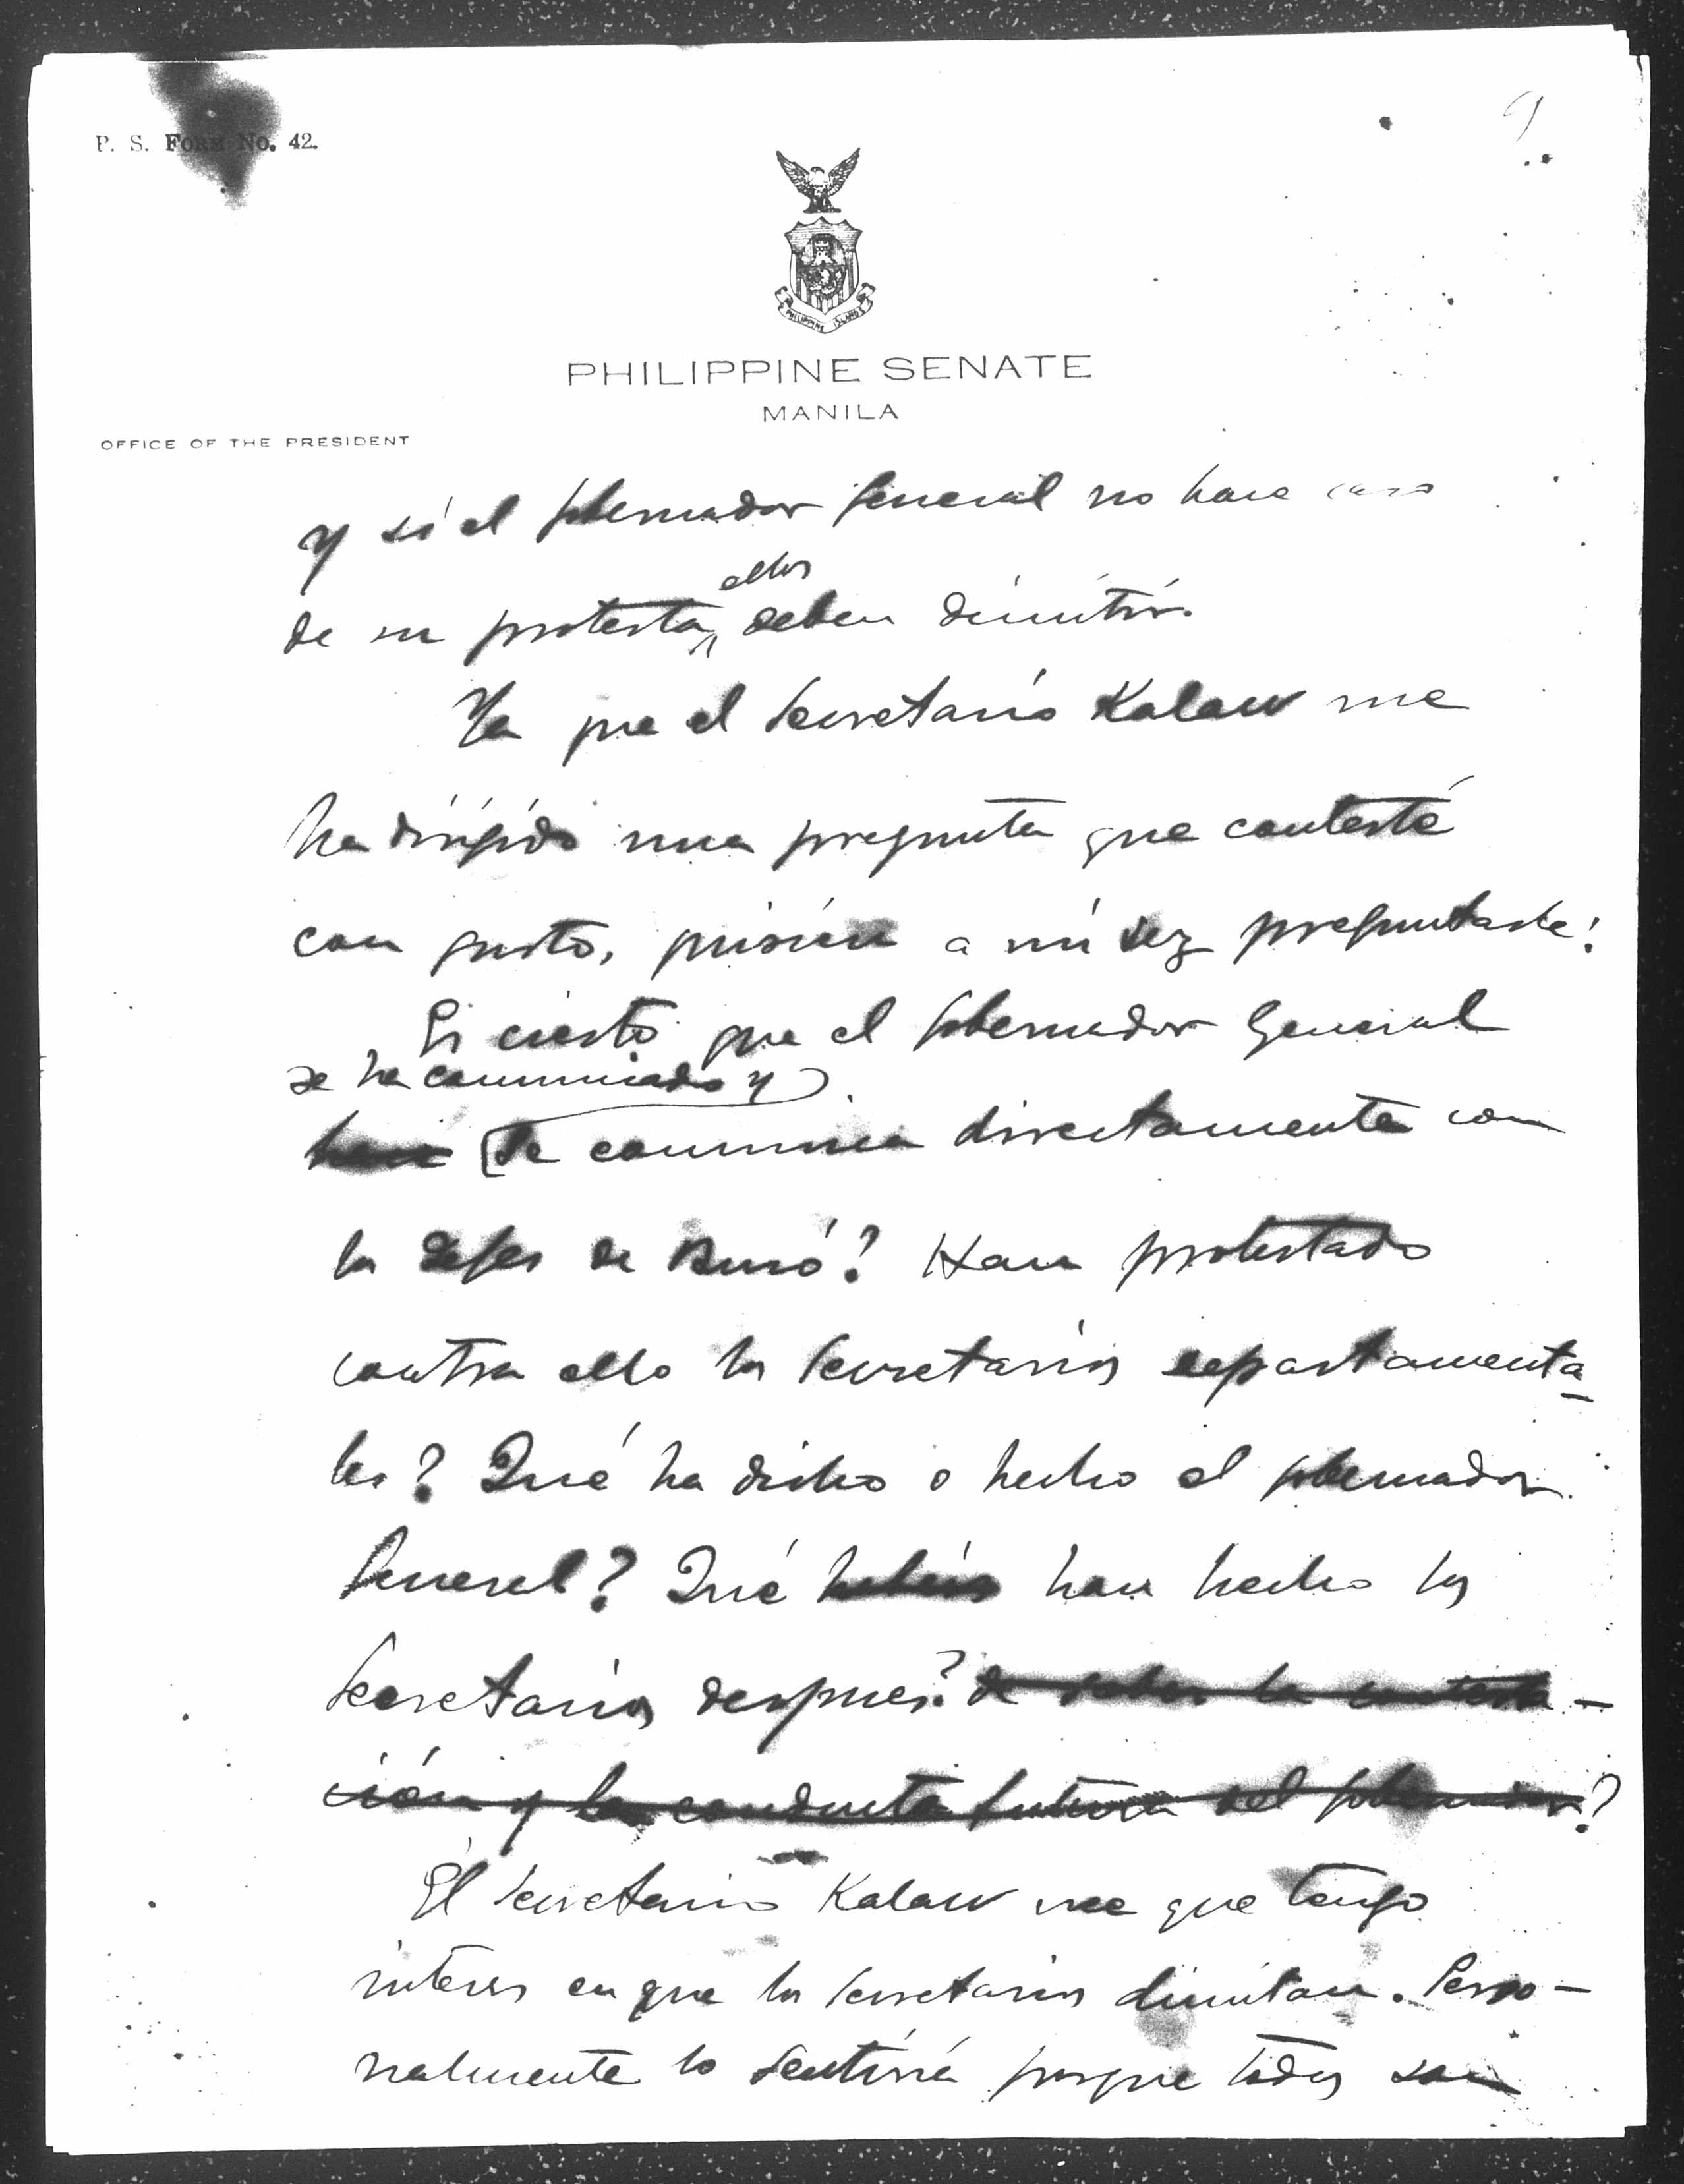 9
P. S. FORM No. 42.
PHILIPPINE ISLANDS
PHILIPPINE SENATE
MANILA
OFFICE OF THE PRESIDENT
y si el Gobernador General no hace caso
de su protesta, ellos deben dimitir.
Ya que el Secretario Kalaw me
ha dirigido una pregunta que contesté
con gusto, quisiera a mi vez preguntarle:
Es cierto que el Gobernador General
se ha comunicado y
se comunica directamente con
los Jefes de Buró? Han protestado
contra ello los Secretarios departamenta-
les? Qué ha dicho o hecho el Gobernador
General? Qué han hecho los
Secretarios despues? de saber la contesta-
ción y la conducta futura del Gobernador?
El Secretario Kalaw cree que tengo
interes en que los Secretarios dimitan. Perso-
nalmente lo sentiria porque todos son